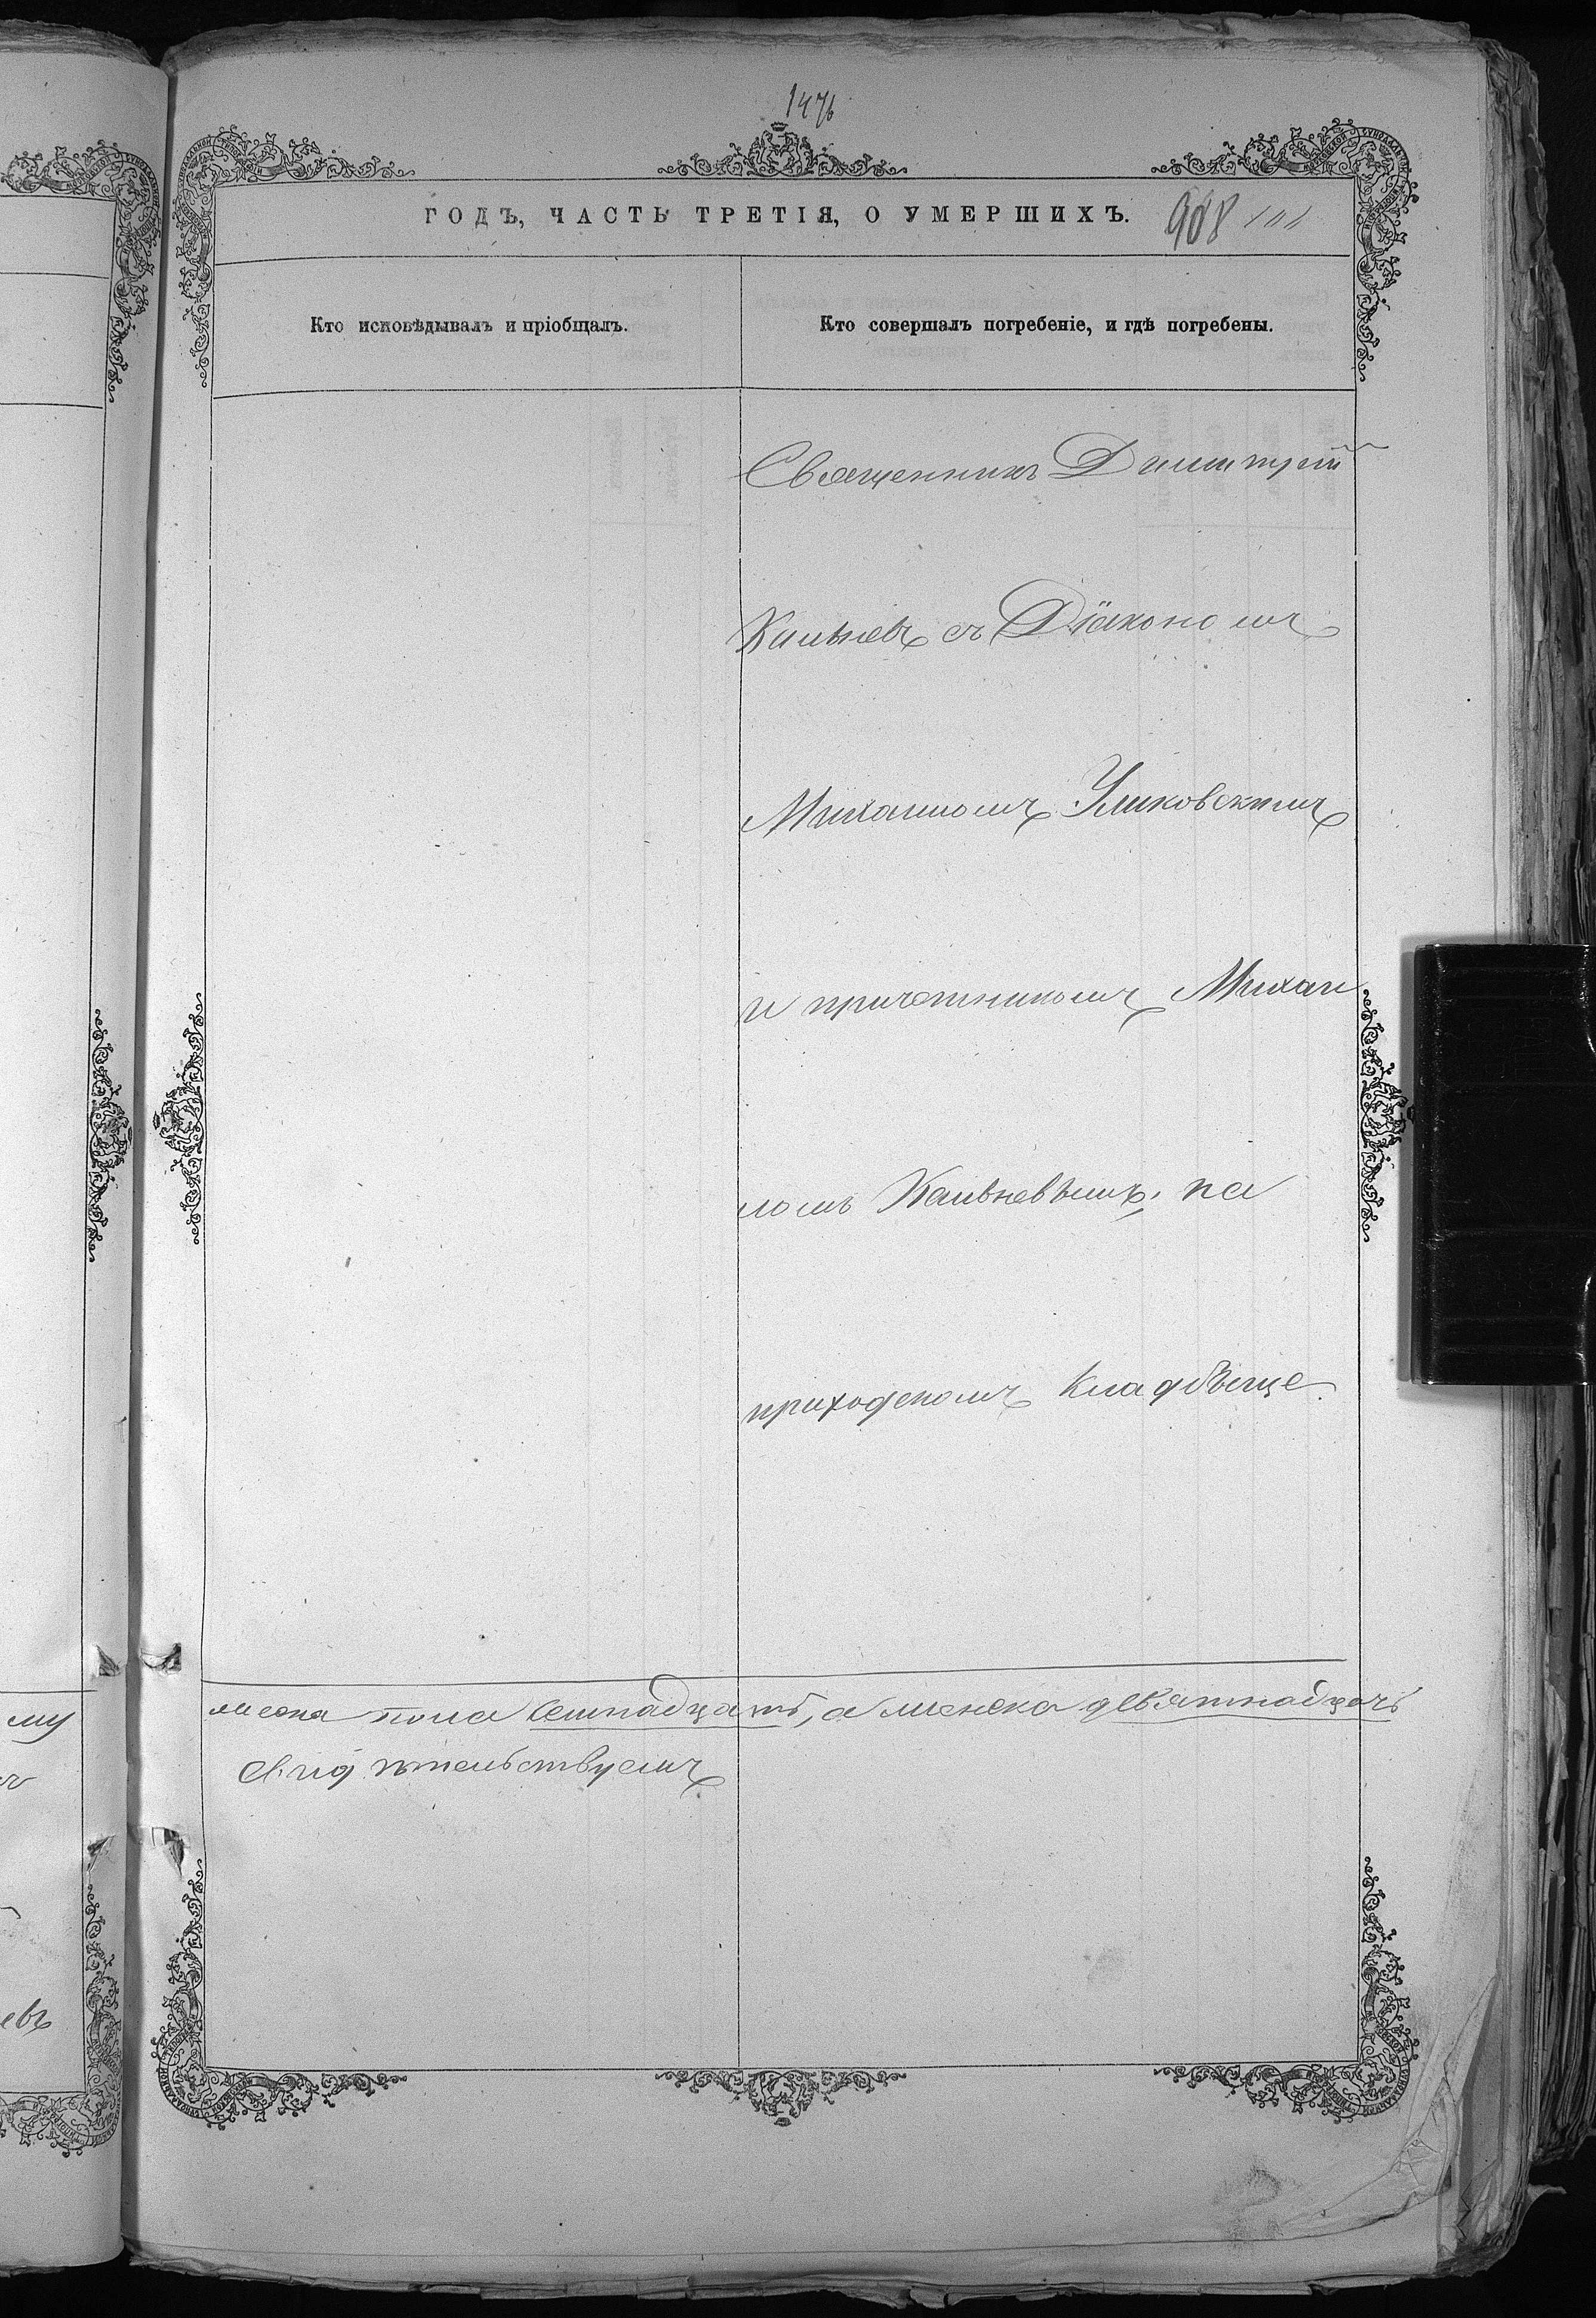 1476
ГОДЪ, ЧАСТЬ ТРЕТІЯ, О УМЕРШИХЪ. 908 101
Кто исповѣдывалъ и пріобщалъ.
Кто совершалъ погребеніе, и гдѣ погребены.
Священникъ Димитрій
съ Діакономъ
Михаиломъ Уликовскимъ
и причетникомъ Михаи
ломъ на
приходскомъ кладбѣще
пола семнадцать, а женска девятнадцать
свидѣтельствуемъ
му
евъ